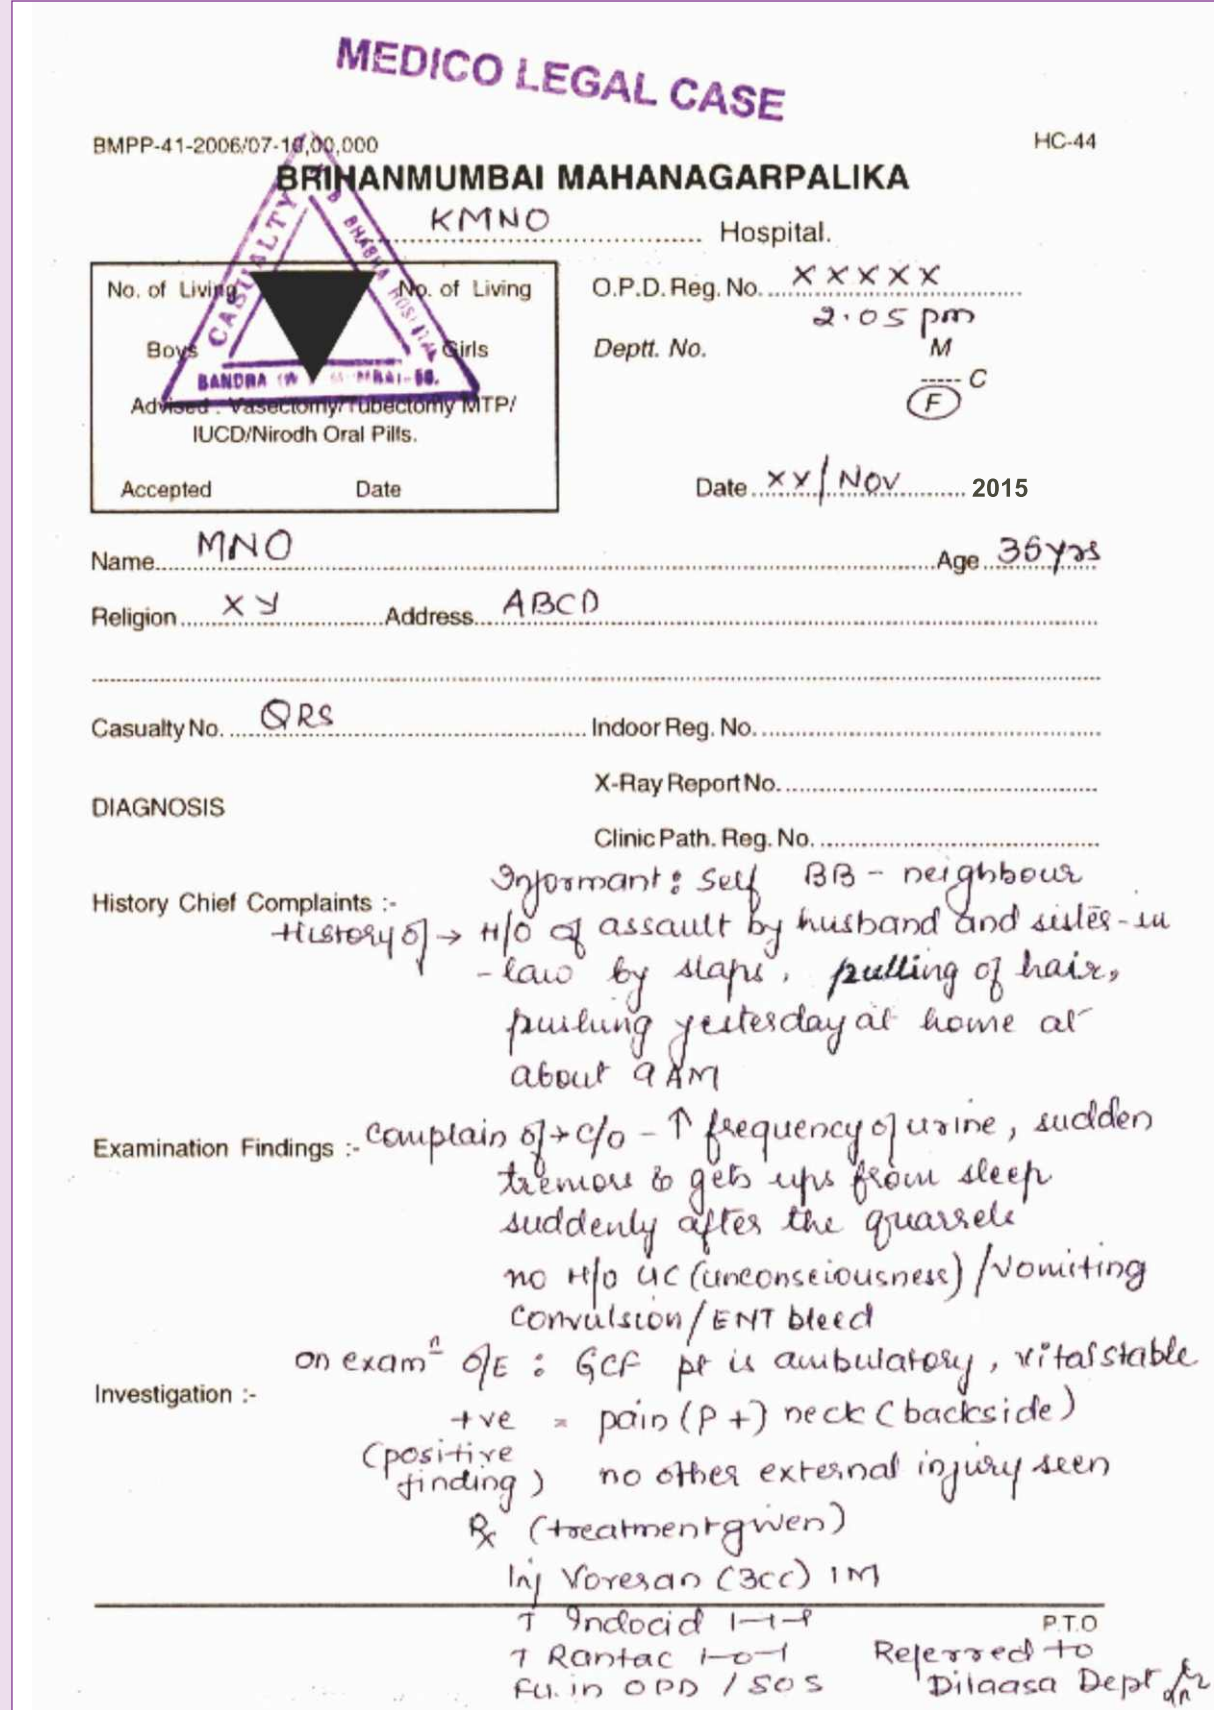 MEDICO LEGAL CASE
BMPP-41-2006/07-10,00,000
HC-44
BRIHANMUMBAI MAHANAGARPALIKA
KMNO Hospital.
CASUALTY
B BHABHA HOSPITAL
BANDRA (W) MUMBAI-50.
No. of Living No. of Living
Boys Girls
Advised : Vasectomy/Tubectomy MTP/
IUCD/Nirodh Oral Pills.
Accepted Date
O.P.D. Reg. No. XXXXX
2.05 pm
Deptt. No. M
C
F
Date XX/Nov 2015
Name MNO Age 36 yrs
Religion XY Address ABCD
Casualty No. QRS Indoor Reg. No.
X-Ray Report No.
DIAGNOSIS
Clinic Path. Reg. No.
Informant : Self BB - neighbour
History Chief Complaints :-
History of → H/O of assault by husband and sister-in
-law by slaps, pulling of hair,
pushing yesterday at home at
about 9 AM
Examination Findings :- complain of → c/o - ↑ frequency of urine, sudden
tremors & gets ups from sleep
suddenly after the quarrels
no H/o UC (unconsciousness) / vomiting
convulsion / ENT bleed
on examⁿ O/E : GCF pt is ambulatory, vital stable
Investigation :-
+ve = pain (P+) neck (backside)
(positive finding) no other external injury seen
Rx (treatment given)
Inj Voresan (3cc) IM
T Indocid 1-1-1
P.T.O
T Rantac 1-0-1 Referred to
FU. in OPD / SOS Dilaasa Dept